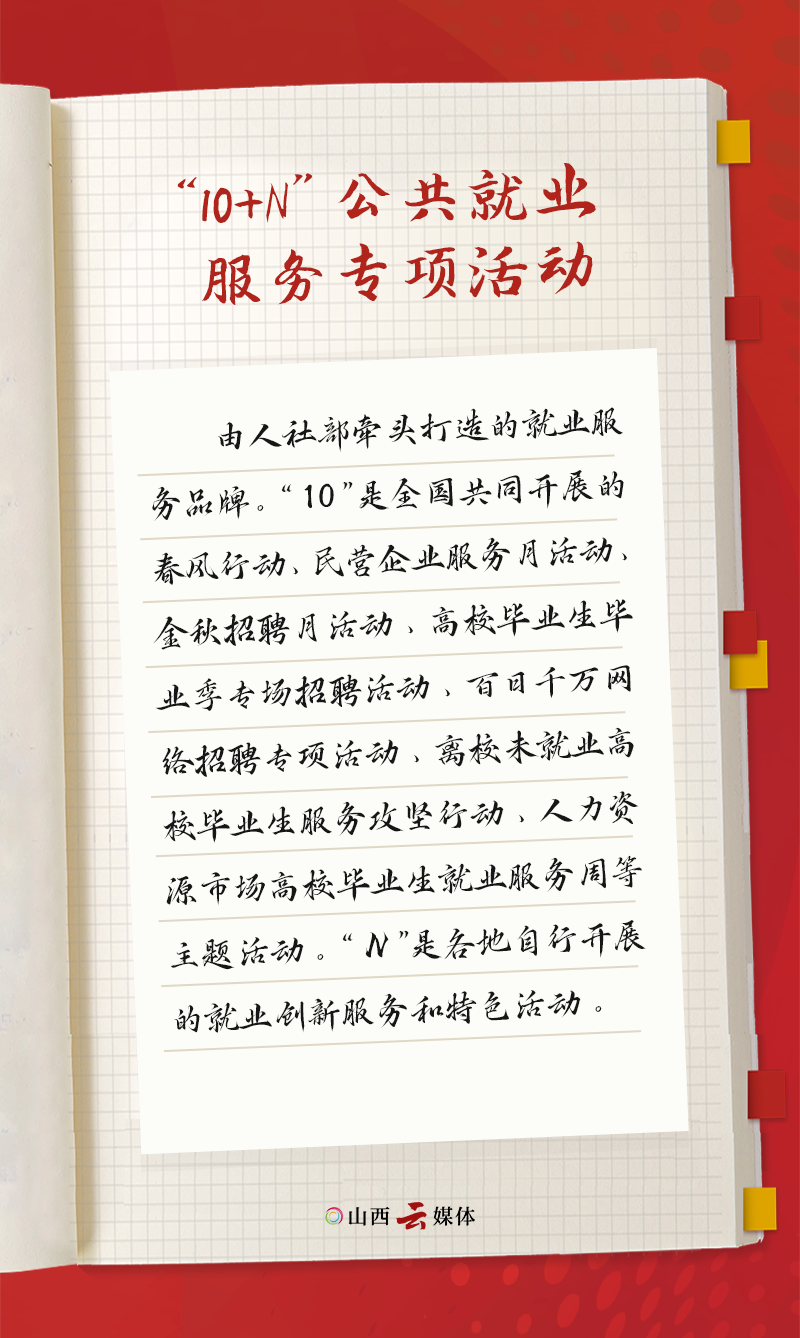 “10+N”公共就业
服务专项活动
由人社部牵头打造的就业服
务品牌。“10”是全国共同开展的
春风行动、民营企业服务月活动、
金秋招聘月活动、高校毕业生毕
业季专场招聘活动、百日千万网
络招聘专项活动、离校未就业高
校毕业生服务攻坚行动、人力资
源市场高校毕业生就业服务周等
主题活动。“N”是各地自行开展
的就业创新服务和特色活动。
山西云媒体